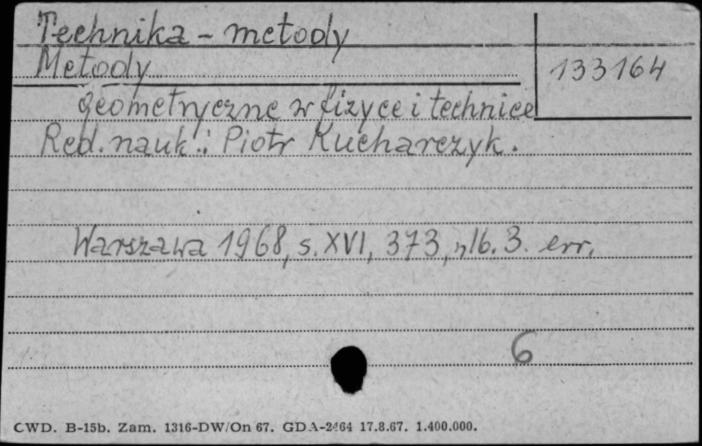 Technika - metody
Metody
133164
geometryczne w fizyce i technice
Red. nauk.: Piotr Kucharczyk.
Warszawa 1968, s. XVI, 373, nlb. 3. err.
6
CWD. B-15b. Zam. 1316-DW/On 67. GDA-2464 17.8.67. 1.400.000.